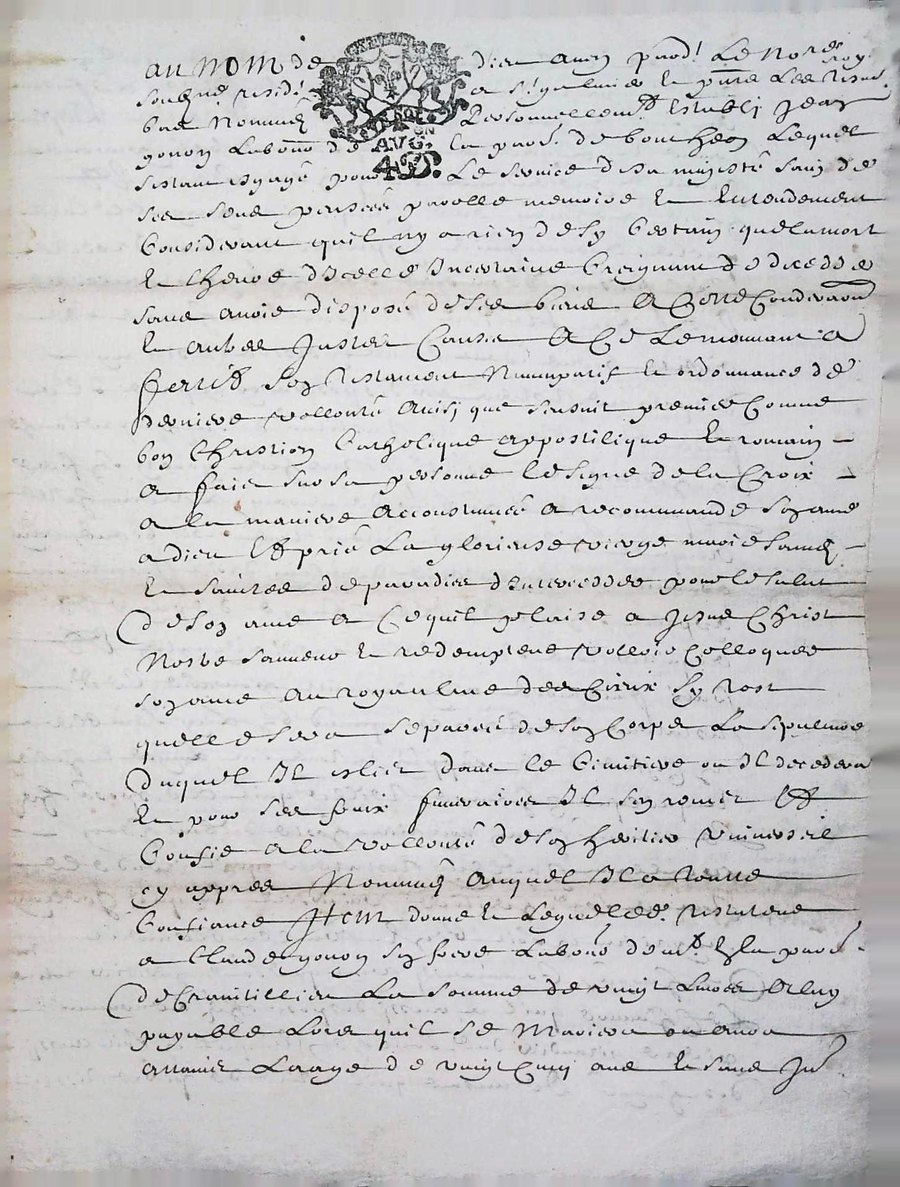 au nom de dieu amen pard.t Le No.re roy.
soubz.né resid.t a S.t galmier et p.nts Les tesm.
bas Nommés personnellem.t Estably Jean
gonon Labou.r de la paro.s de boutheon Lequel
estant engagé pour Le service de sa majesté sain de
ses sens pensées parolle memoire et Entendement
Considerant quil ny a rien de sy Certain que la mort
et Lheure dicelle Incertaine Craignant de deceder
sans avoir disposé de ses biens A Cette Consideraon
et autres Justes Causes A
son testament Nuncupatif et ordonnance de
derniere vollonté Ainsy que sensuit premier Comme
bon Christien Catholique appostilique et romain
a fait sur sa personne le signe de la Croix
a la maniere accoustumée a recommandé son ame
a dieu Et prié La glorieuse vierge marie saincts
et sainctes de paradies dInterceder pour le salut
de son ame a Ce quil plaise a Jesus Christ
Nostre sauveur et redempteur volloir Colloquer
son ame au royaulme des Cieux sy tost
quelle sera separée de son Corps La sepulture
duquel Il eslict dans le Cimitiere ou Il decedera
et pour ses fraix funeraires Il sen remet Et
Confie a la vollonté de son heritier universel
cy appres Nommés Auquel Il a toutte
Confiance Item donne et Legue led. testateur
a Claude gonon son frere Labou.r dem.t En la paro.s
de Craintillieu La somme de vingt Livres A luy
payable Lors quil se Mariera ou aura
attaint Laage de vingt Cinq ans et sans In
AVG.